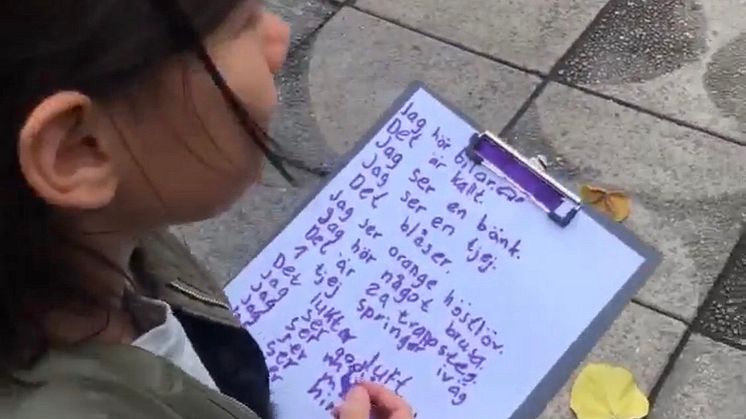 Jag hör bilar
Det är kallt
Jag ser en bänk.
Jag ser en tjej.
Det blåser.
Jag ser orange höstlöv.
Jag hör något brutq.
Det är 29 trappsteg.
1 tjej springer iväg
Det luktar godlukt
Jag ser
Jag ser
Jag ser